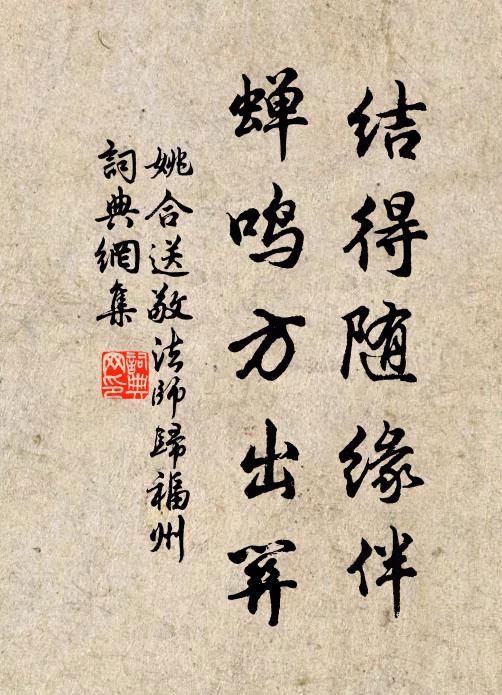 结得随缘伴
蝉鸣方出关
姚合送敬法師歸福州
詞典網集
詞典网印